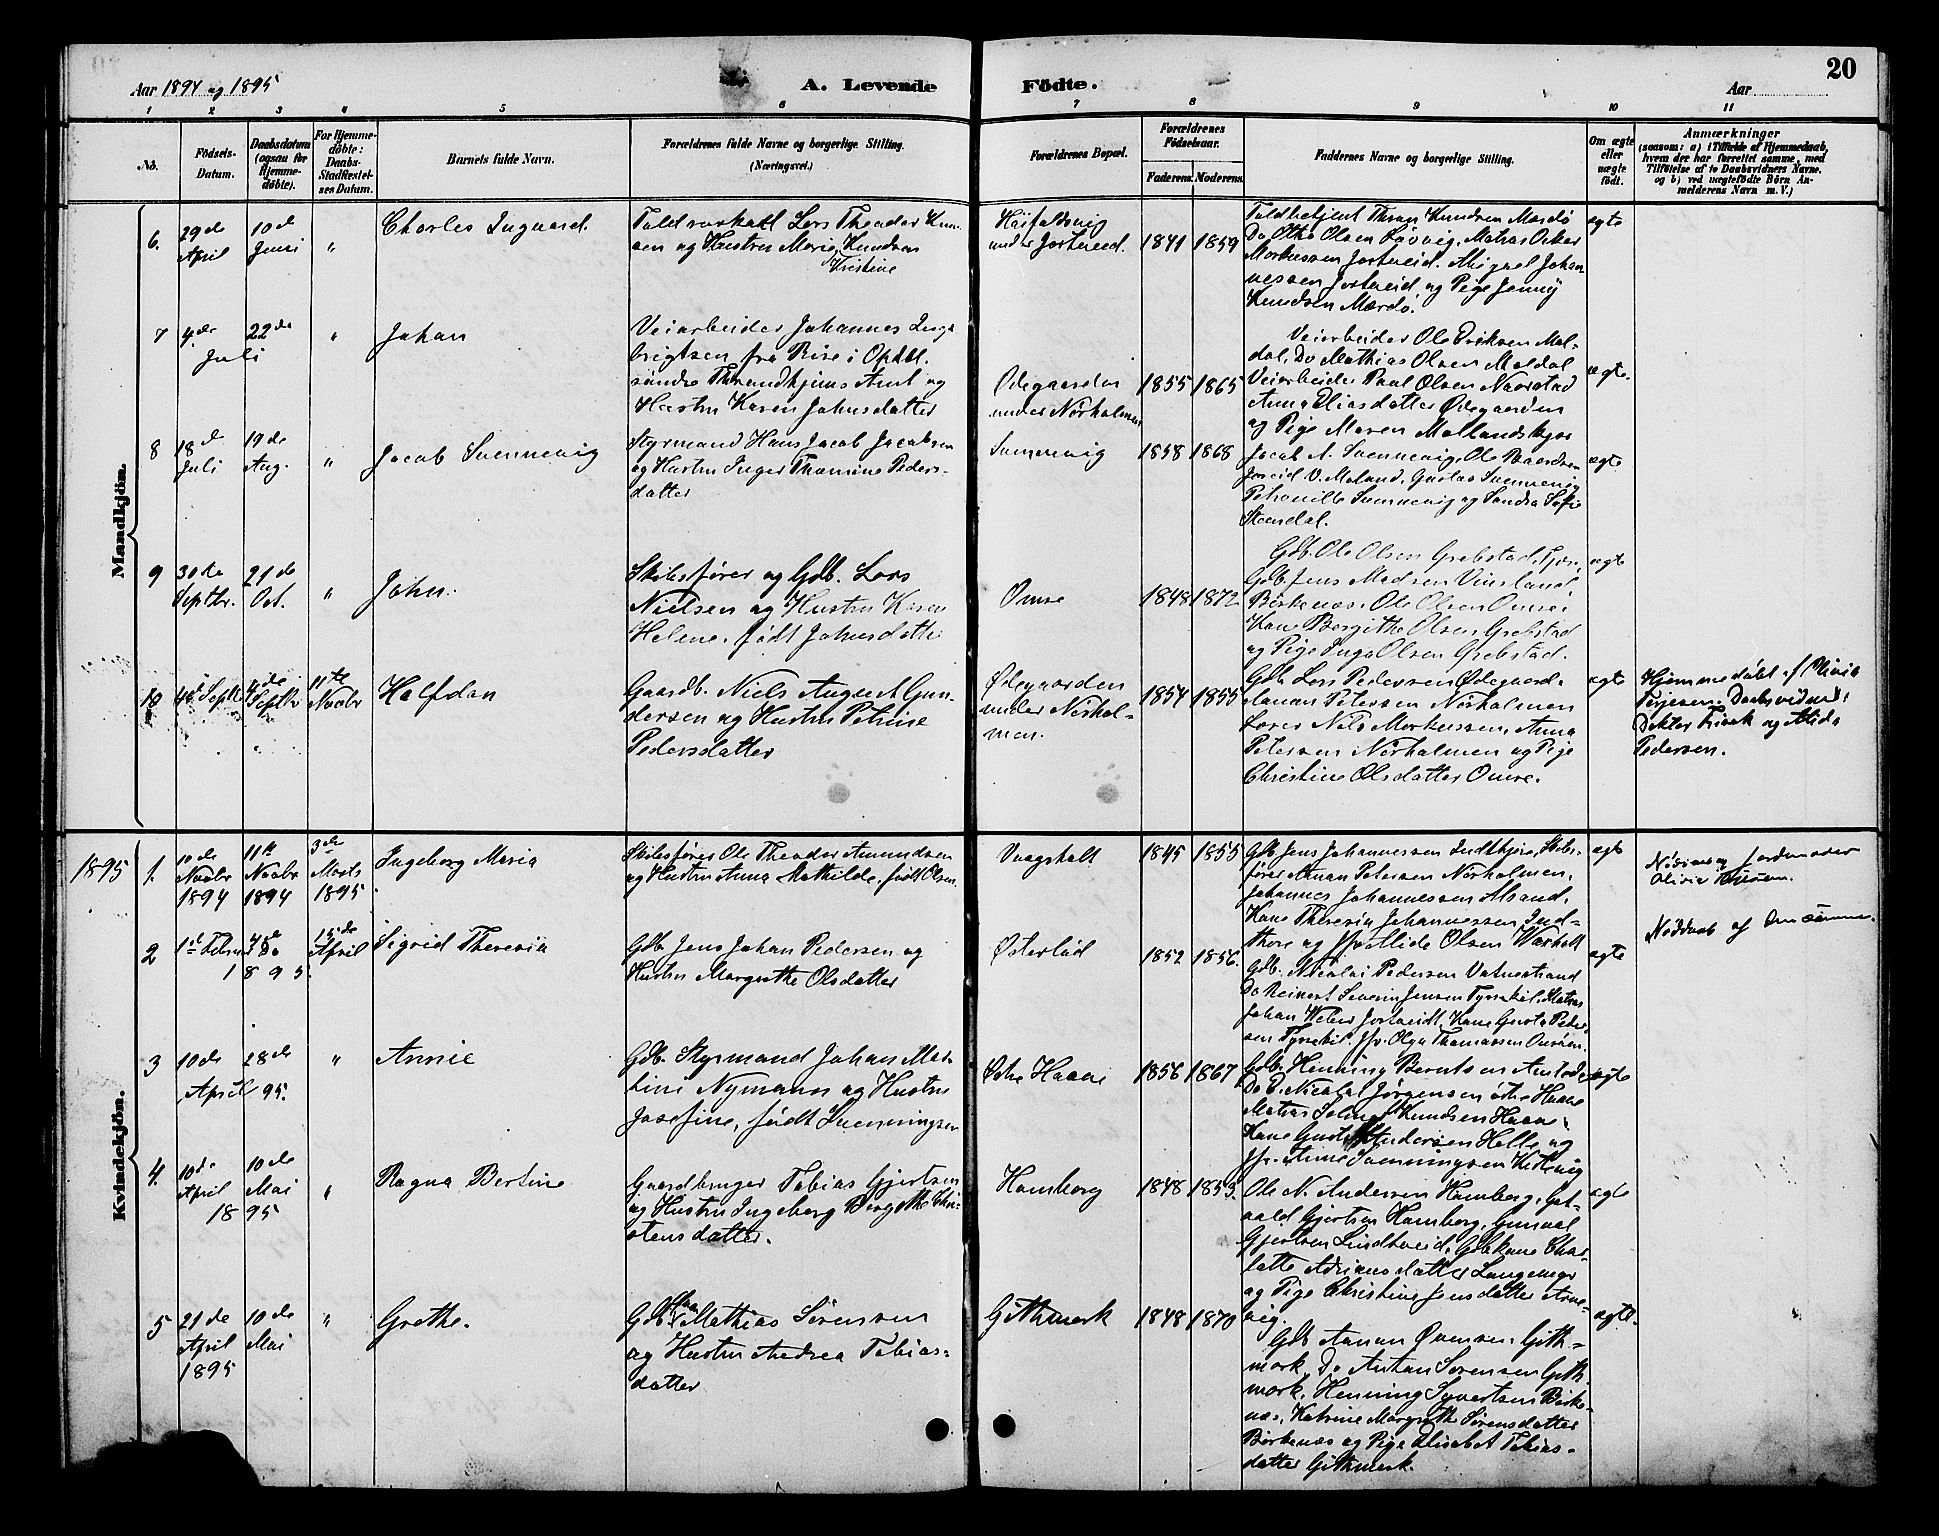 20
Aar 1894 og 1895
A. Levende
Födte.
Aar
1 2 3 4 5 6 7 8 9 10 11
No.
Födsels-
Datum.
Daabsdatum
(ogsaa for
Hjemme-
døbte).
For Hjemme-
döbte:
Daabs-
Stadfæstel-
ses Datum.
Barnets fulde Navn.
Forældrenes fulde Navne og borgerlige Stilling.
(Næringsvei.)
Forældrenes Bopæl.
Forældrenes
Födselsaar.
Faderens. Moderens.
Faddernes Navne og borgerlige Stilling.
Om ægte
eller
uægte
födt.
Anmærkninger
(saasom: a) i Tilfælde af Hjemmedaab,
hvem der har forrettet samme, med
Tilföielse af to Daabsvidners Navne,
og b) ved uægtefödte Börn An-
melderens Navn m. V.)
Mandkjön.
6. 29de
April
10de
Juni
"
Charles Ingvard.
Lars Theodor Knud-
sen og Hustru Marie Knudsen
Kristine
under Jortveid.
1841 1859
Thron Knudsen Mærdö
Do Otto Olsen Løvvig, Matros Oskar
Markussen Jortveid. Miguel Johan-
nessen Jortveid og Pige Jenny
Knudsen Mærdö.
ægte
7 4de
Juli
22de
"
Johan
Veiarbeider Johannes Inge
brigtsen fra Rise i Opdal
søndre Throndhjems Amt og
Hustru Karen Johnsdatter
Ødegaarden
under Nörholmen
1855 1865
Veiarbeider Ole Eriksen Mel-
dal, Do Mathias Olsen Meldal
Veiarbeider Paul Olsen Naavstad
Anna Eliasdatter Ødegaarden
og Pige Maren Mollandskjær
ægte.
8 18de
Juli
19de
Aug.
"
Jacob Svennevig
Styrmand Hans Jacob Jacobsen
og Hustru Inger Thomine Peders-
datter
Svennevig
1858 1868
Jacob A. Svennevig, Ole Baardsen
V. Moland, Gustav Svennevig
Petronille Svennevig og Sandra Sofie
Steendal.
ægte
9 30de
Septbr.
21de
Oct.
"
John.
Skibsfører og Gdb. Lars
Nielsen og Hustru Karen
Helene, født Johnsdatter
Omre
1848 1872
Gdb. Ole Olsen Grebstad, Fjære,
Gdb. Jens Madsen Vinsland,
Birkenæs, Ole Olsen Omre,
Kone Borgithe Olsen Grebstad
og Pige Inga Olsen Grebstad.
ægte
10 4de Septbr
Septbr
11te
Novbr
Halfdan
Gaardb. Niels August Gun-
dersen og Hustru Petrine
Pedersdatter
Ødegaarden
under Nörhol-
men.
1854 1855
Gdb Lars Pedersen Ødegaard,
Aanan Petersen Nörholmen
Lærer Nils Markussen, Anna
Petersen Nörholmen og Pige
Christine Olsdatter Omre.
ægte
Hjemmedøbt af Olivia
Terjesen. Daabsvidner:
Doktor og Alida
Pedersen.
Kvindekjön.
1895
1. 10de
Novbr
1894
11te
Novbr
1894
3die
Marts
1895
Ingeborg Maria
Skibsfører Ole Theodor Amundsen
og Hustru Anna Mathilde, født Olsen.
Vaagsholt
1845 1855
Gdb. Jens Johannessen Indthjore, Skibs-
fører Aanan Petersen Nörholmen,
Johannes Johannessen Alsand,
Kone Theresia Johannessen Ind-
thore og Jfr Alide Olsen Vaxholt
ægt
Jordemoder
Olivia
2 1de Februar
1895.
15de
April
Sigrid Theresia
Gdb. Jens Johan Pedersen og
Hustru Margrethe Olsdatter
Østerlud
1852 1856.
Gdb. Nicolai Pedersen Vatnestrand
Do Reinert Severin Jensen Tyrskil, Matros
Johan Weber Jortveidt, Kone Gusta Peder-
sen Tyrskil, Jfr. Olga Thomassen Omren.
ægte
Nöddaab af samme.
3 10de
April
28de
95.
"
Annie
Gdb. Styrmand Johan Mar-
tini Nymann og Hustru
Josefine, født Svenningsen
Østre Haave
1856 1867
Gdb. Henning Berntsen
Do E. Nicolai Jørgensen østre Haave
Matros Knudsen Haave,
Kone Andersen Helle og
Jfr. Anne Svenningsen
ægte
4. 10de
April
1895
10de
Mai
"
Ragna Bertine
Gaardbruger Tobias Gjertsen
og Hustru Ingeborg Birgitte Chri-
stensdatter.
Homborg
1848 1853.
Ole N. Andersen Homborg, Got-
vald Gjertsen Homborg, Gunval
Gjertsen Lindtveid, Gdbkone Char-
lotte Adriansdatter Langemyr
og Pige Christine Jensdatter Arne-
vig.
ægte
5 21de
April
1895
10de
Mai
"
Grethe.
Gdb. Mathias Sörensen
og Hustru Andrea Tobias-
datter
Githmark
1848 1870
Gdb Aanan Øvensen Gith-
mark, Do Antan Sørensen Gith-
mark, Henning Syvertsen Birke-
næs, Katrine Margrethe Sørensdatter
Birkenæs og Pige Elisabet Tobias-
datter Githmark.
ægte.